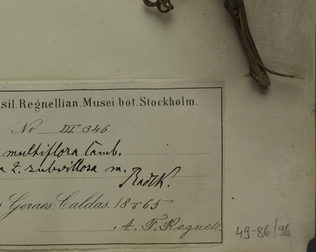 sil. Regnellian. Musei bot. Stockholm.
No III 346
multiflora Camb.
a 2. subvillosa m.
Radlk.
Geraes: Caldas. 18 65
A. F. Regnell
49-86/96